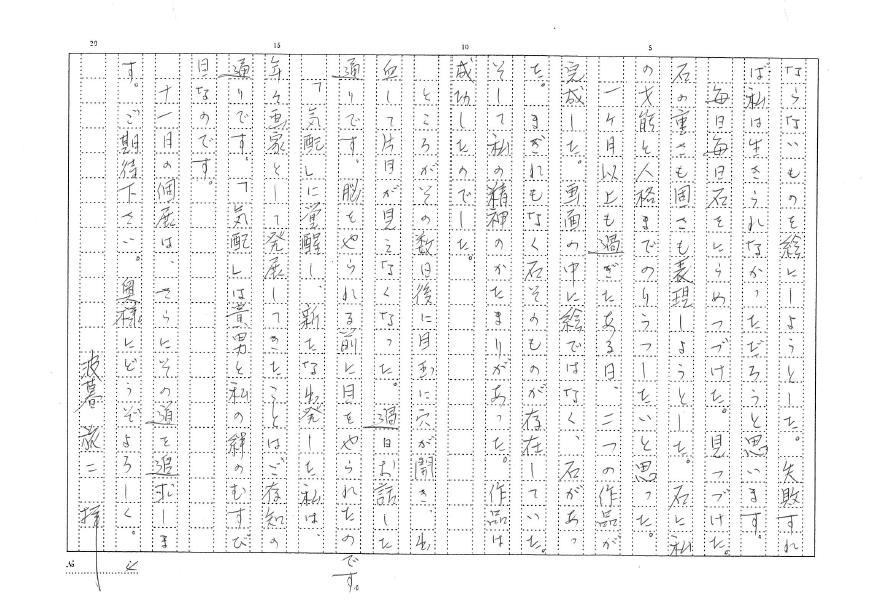 ならないものを絵にしようとした。失敗すれ
ば私は生きられなかっただろうと思います。
毎日毎日石をにらめつづけた。見つづけた。
石の重さも固さも表現しようとした。石に私
の才能と人格までのりうつしたいと思った。
一ヶ月以上も過ぎたある日、二つの作品が
完成した。画面の中に絵ではなく、石があっ
た。まぎれもなく石そのものが存在していた。
そして私の精神のかたまりがあった。作品は
成功したのでした。
ところがその数日後に目玉に穴が開き、出
血して片目が見えなくなった。過日お話した
通りです。脳をやられる前に目をやられたのです。
「気配」に覚醒し、新たな出発した私は、
年々画家として発展してきたことはご存知の
通りです。「気配」は貴男と私の絆のむすび
目なのです。
十一月の個展は、さらにその道を追求しま
す。ご期待下さい。奥様にどうぞよろしく。
拝
5
10
15
20
No
4